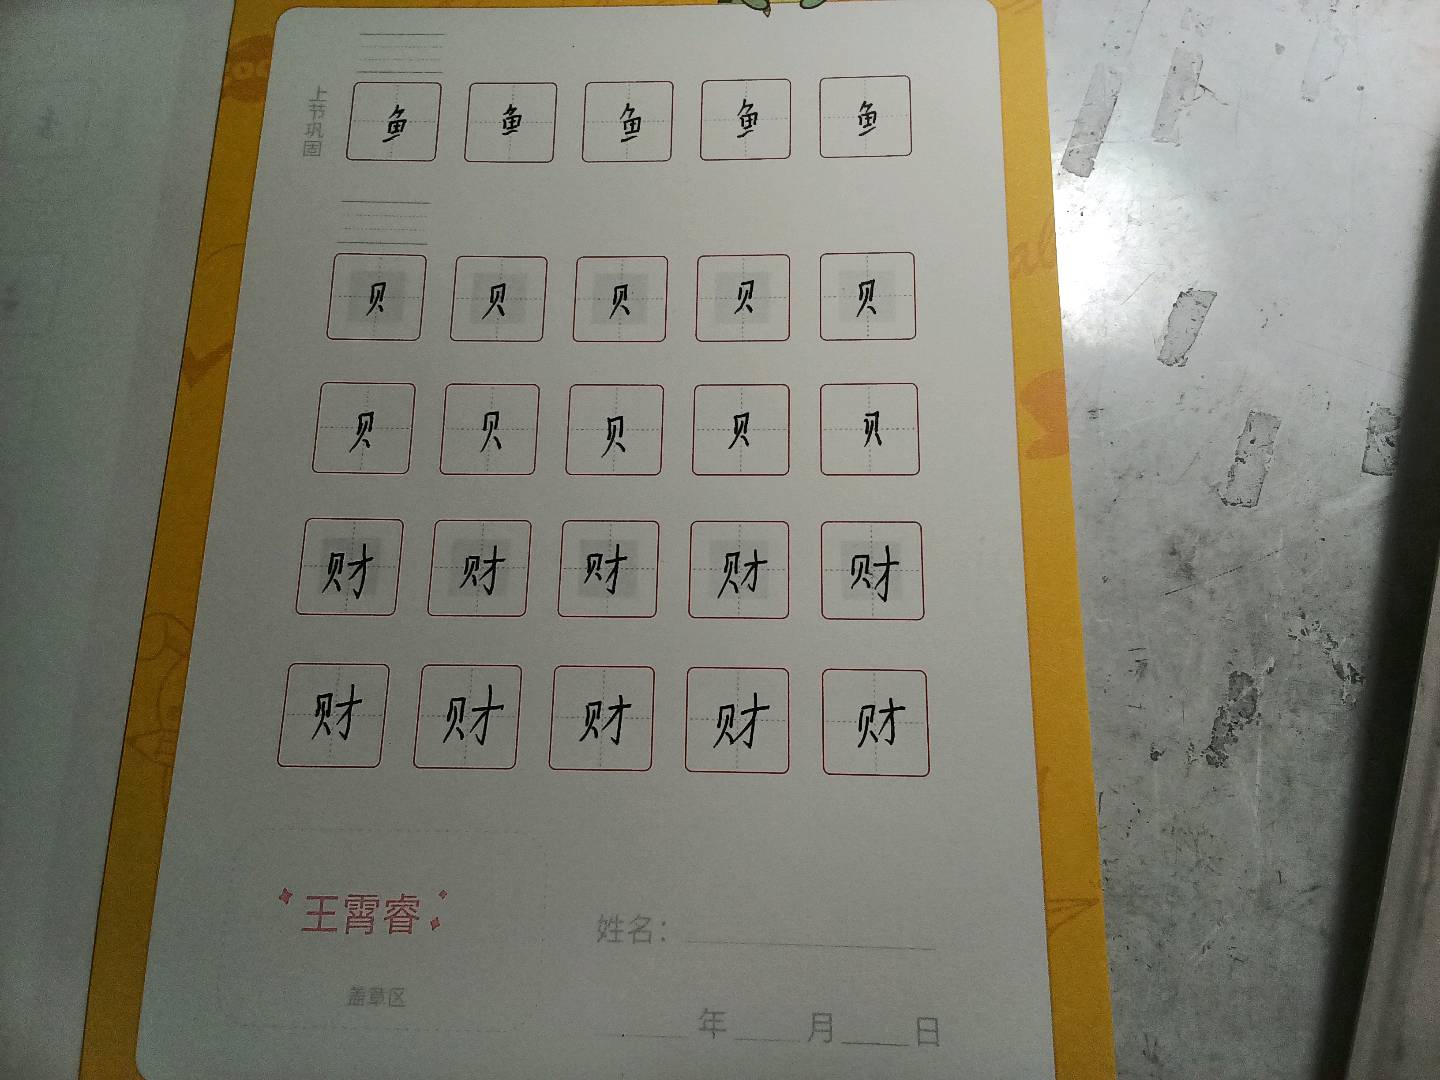 上节巩固
鱼 鱼 鱼 鱼 鱼
贝 贝 贝 贝 贝
贝 贝 贝 贝 贝
财 财 财 财 财
财 财 财 财 财
王霄睿
盖章区
姓名：
年 月 日